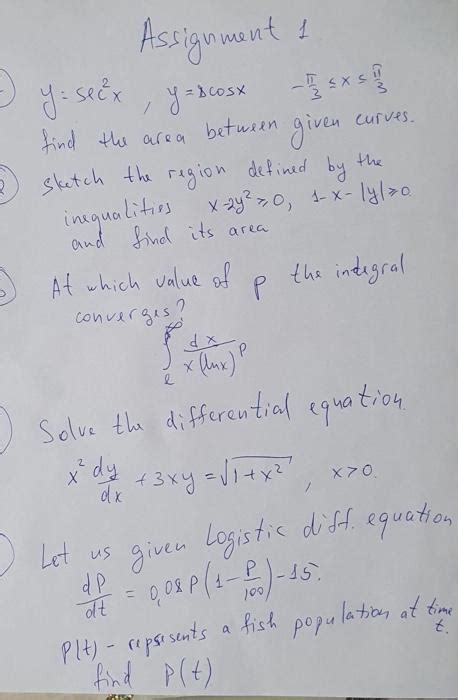 Assignment 1
y = sec²x , y = 8cosx -π/3 ≤ x ≤ π/3
find the area between given curves.
Sketch the region defined by the
inequalities x-2y² ≥ 0, 1-x-|y| ≥ 0
and find its area
At which value of p the integral
converges?
∫ₑ^∞ dx / x(lnx)^p
Solve the differential equation.
x² dy/dx + 3xy = √(1+x²) , x>0.
Let us given Logistic diff. equation
dP/dt = 0,08P(1 - P/100) - 15.
P(t) - represents a fish population at time t.
find P(t)